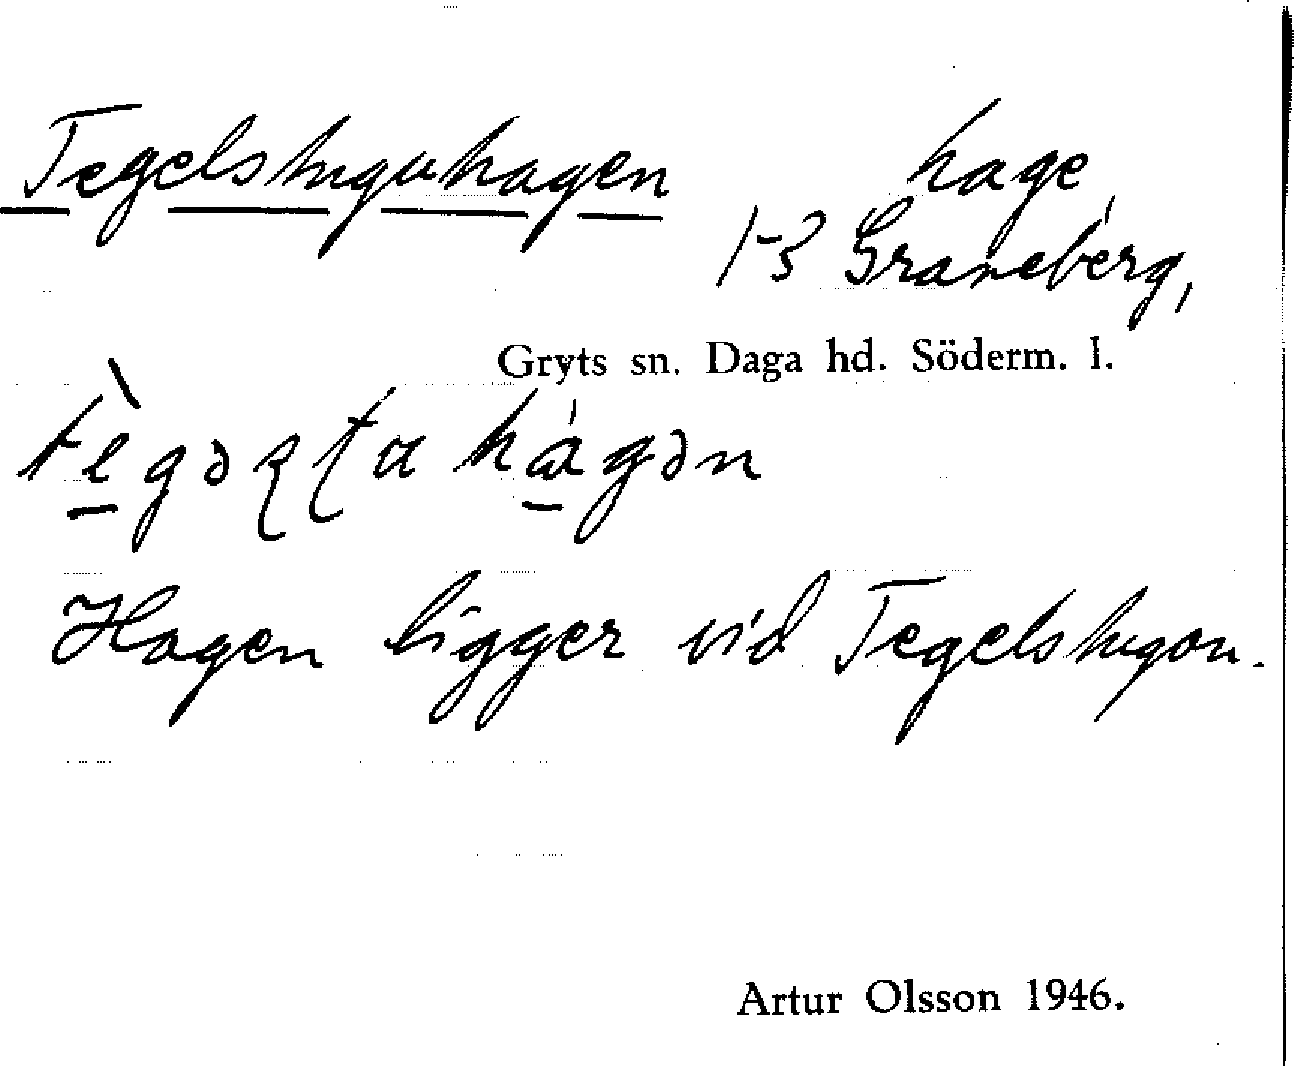 Tegelstuguhagen hage
1-3 Graneberg,
Gryts sn. Daga hd. Söderm. l.
Hagen ligger vid Tegelstugon.
Artur Olsson 1946.